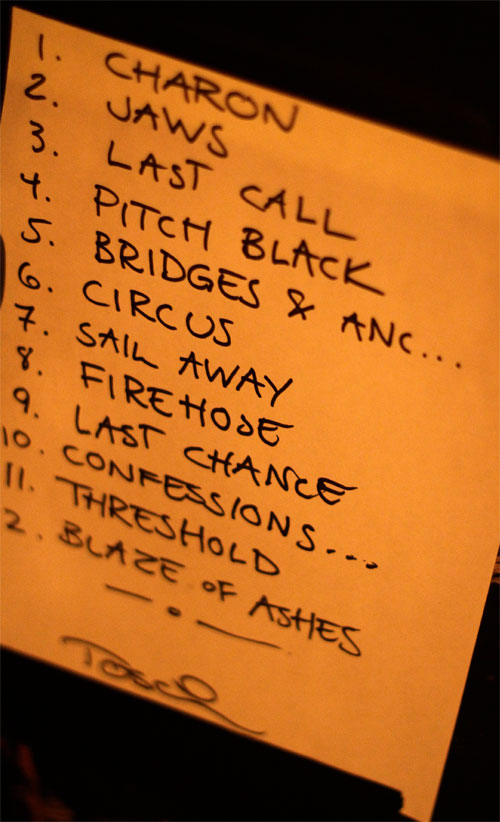 1. CHARON
2. JAWS
3. LAST CALL
4. PITCH BLACK
5. BRIDGES & ANC...
6. CIRCUS
7. SAIL AWAY
8. FIREHOSE
9. LAST CHANCE
10. CONFESSIONS...
11. THRESHOLD
2. BLAZE OF ASHES